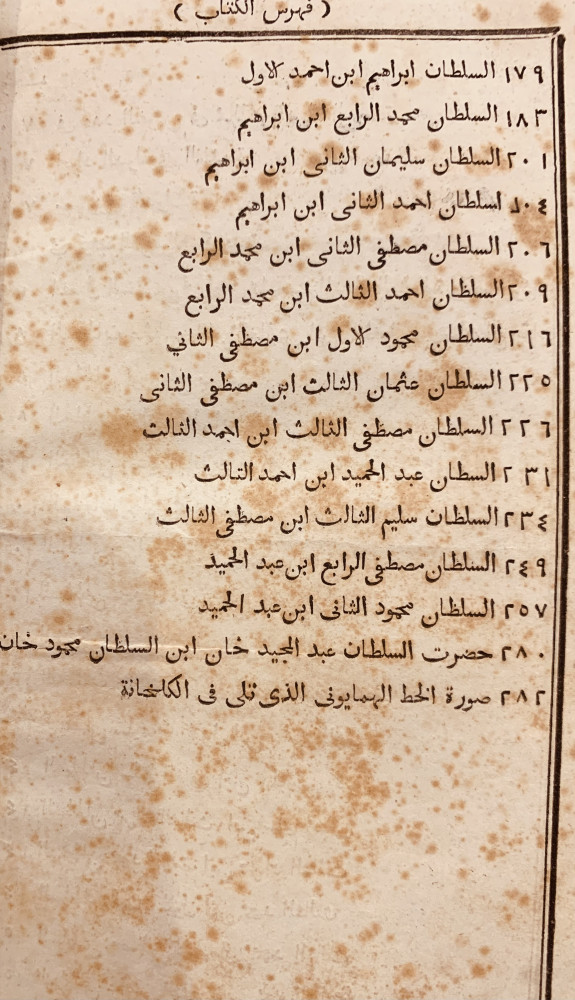 ( فهرس الكتاب )
١٧٩ السلطان ابراهيم ابن احمد كلاول
١٨٣ السلطان محمد الرابع ابن ابراهيم
٢٠١ السلطان سليمان الثانى ابن ابراهيم
٢٠٤ اسلطان احمد الثانى ابن ابراهيم
٢٠٦ السلطان مصطفى الثانى ابن محمد الرابع
٢٠٩ السلظان احمد الثالث ابن محمد الرابع
٢١٦ السلطان محمود كلاول ابن مصطفى الثاني
٢٢٥ السلطان عثمان الثالث ابن مصطفى الثانى
٢٢٦ السلطان مصطفى الثالث ابن احمد الثالث
٢٣١ السطان عبد الحميد ابن احمد التالث
٢٣٤ السلطان سليم الثالث ابن مصطفى الثالث
٢٤٩ السلطان مصطفى الرابع ابن عبد الحميد
٢٥٧ السلظان محمود الثانى ابن عبد الحميد
٢٨٠ حضرت السلطان عبد المجيد خان ابن السلطان محمود خان
٢٨٢ صورة الخط الهمايونى الذى تلى فى الكلخانة